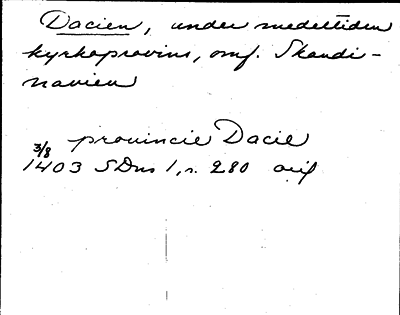 Dacien, under medeltiden
kyrkoprovins, omf. Skandi-
navien
provincie Dacie
3/8
1403 SDns 1, s. 280 orig